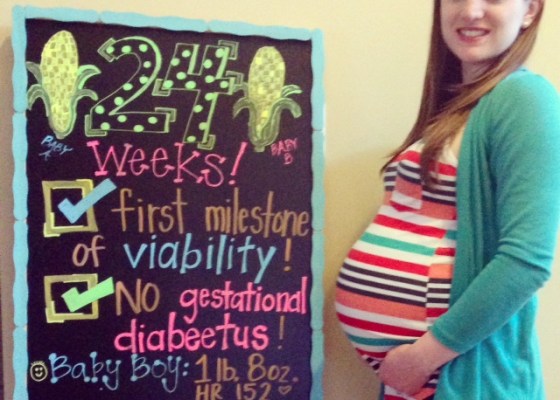 24
BABY A BABY B
weeks!
first milestone
of viability!
NO gestational
diabeetus!
Baby Boy: 1 lb. 8oz.
HR 152